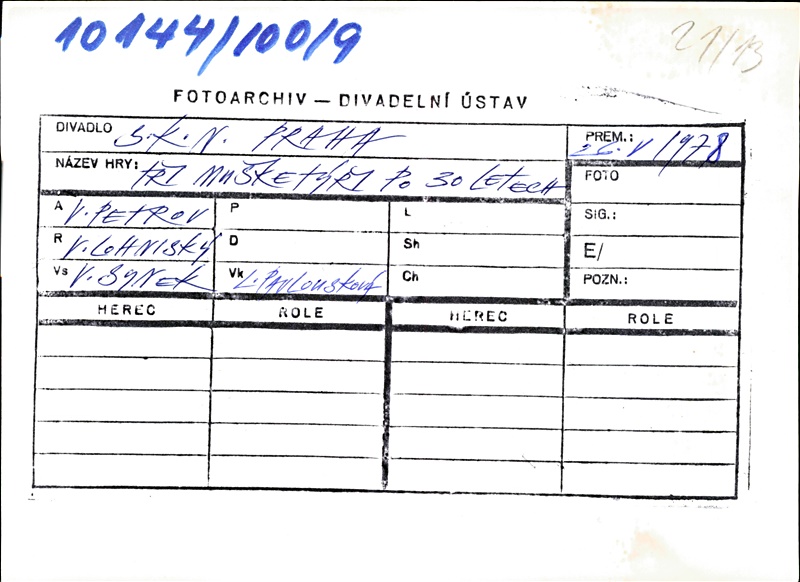 10144/100/9
21/13
FOTOARCHIV — DIVADELNÍ ÚSTAV
DIVADLO S.K.N. PRAHA
PREM.: 26.V 1978
NÁZEV HRY: TŘI MUŠKETÝŘI PO 30 LETECH
FOTO
A V. PETROV P L
SIG.:
R V. LOHNISKÝ D Sh
E/
Vs V. SYNEK Vk L. PAVLOUSKOVÁ Ch
POZN.:
HEREC ROLE HEREC ROLE